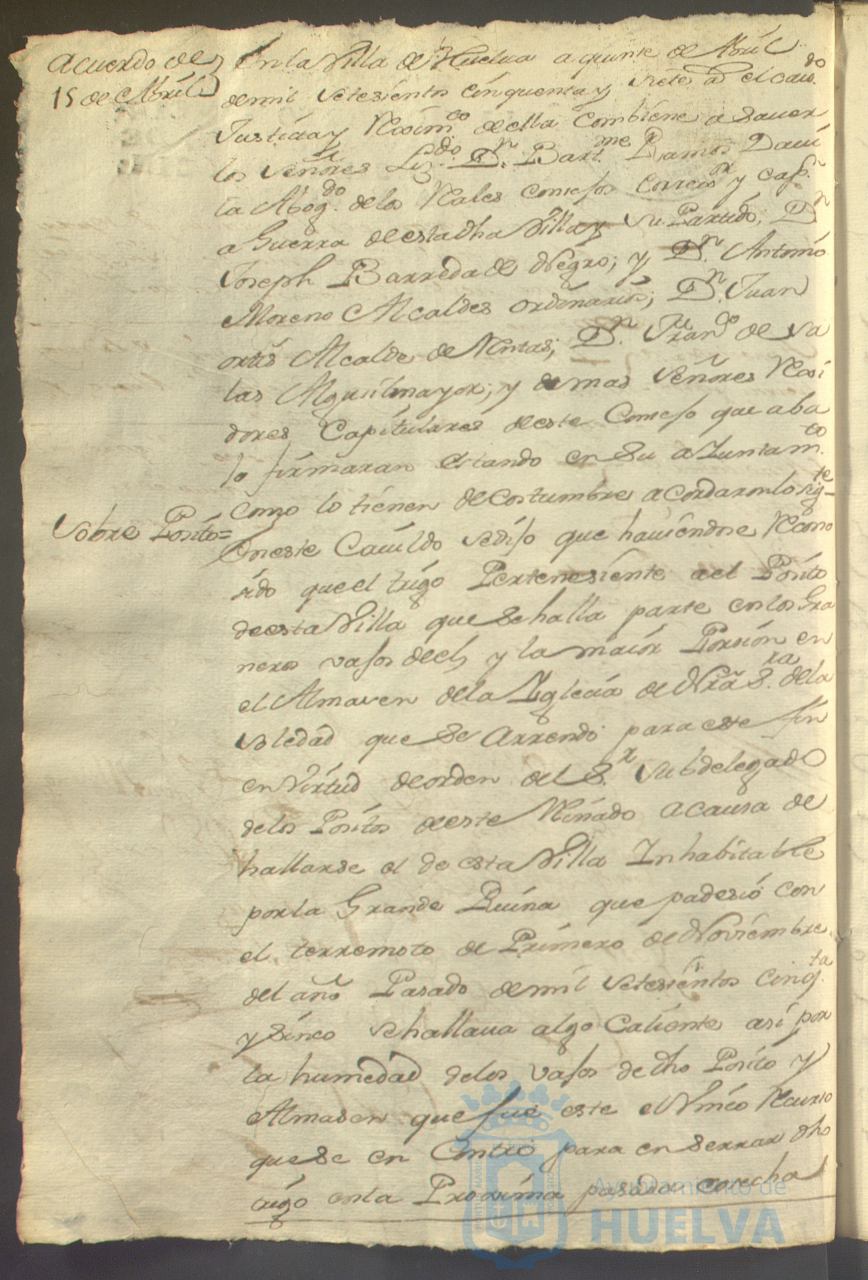 Acuerdo de
15 de Abril
En la Villa de Huelva a quinse de Abril
de mil setesientos cinquenta y siete as. el cavdo.
Justicia y Reximto. de ella combiene a saver
los Señores Lizdo. Dn. Bartme. Ramos Davi
la Abogdo. de los Reales consejos Correxor y Capn.
a Guerra de esta dha Villa y su Partido, Dn.
Joseph Barreda de Negro; y Dn. Antonio
Moreno Alcaldes ordinarios; Dn. Juan
ortis Alcalde de Mntas; Dn. Franco. de Sa
las Alguasilmayor; y demas Señores Rexi
dores Capitulares de este Consejo que aba
jo firmaran estando en su aJuntamto.
como lo tienen de costumbre acordaron lo sigte.
Sobre Posito =
En este Cavildo se dijo que haviendose Recono
sido que el trigo Pertenesiente a el Posito
de esta Villa que se halla parte en los Gra
neros vasos de el y la maior Porsion en
el Almasen de la Iglecia de Nra Sra. de la
Soledad que se Arrendo para este fin
en Virtud de orden del Sr. Subdelegado
de los Positos de este Reinado a causa de
hallarse el de esta Villa Inhabitable
por la Grande Ruina que padesio con
el terremoto de Primero de Noviembre
del año Pasado de mil setesientos cinqta.
y sinco se hallava algo Caliente asi por
la humedad de los vasos de dho Posito y
Almasen que fue este el Unico Recurso
que se en Contro para en serrar dho
trigo en la Proxima pasada cosecha
Ayuntamiento de
HUELVA